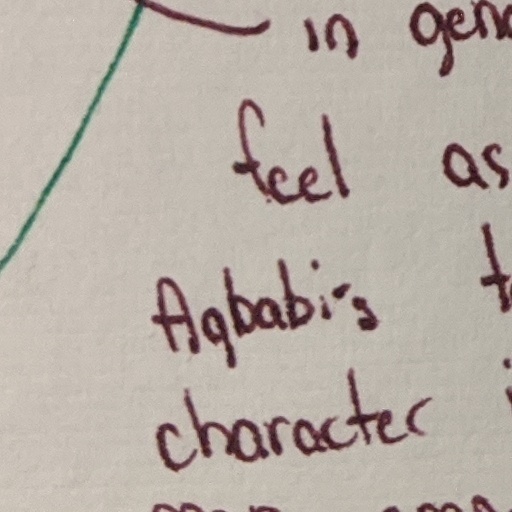 in gen
feel as
Agbabi's t
character